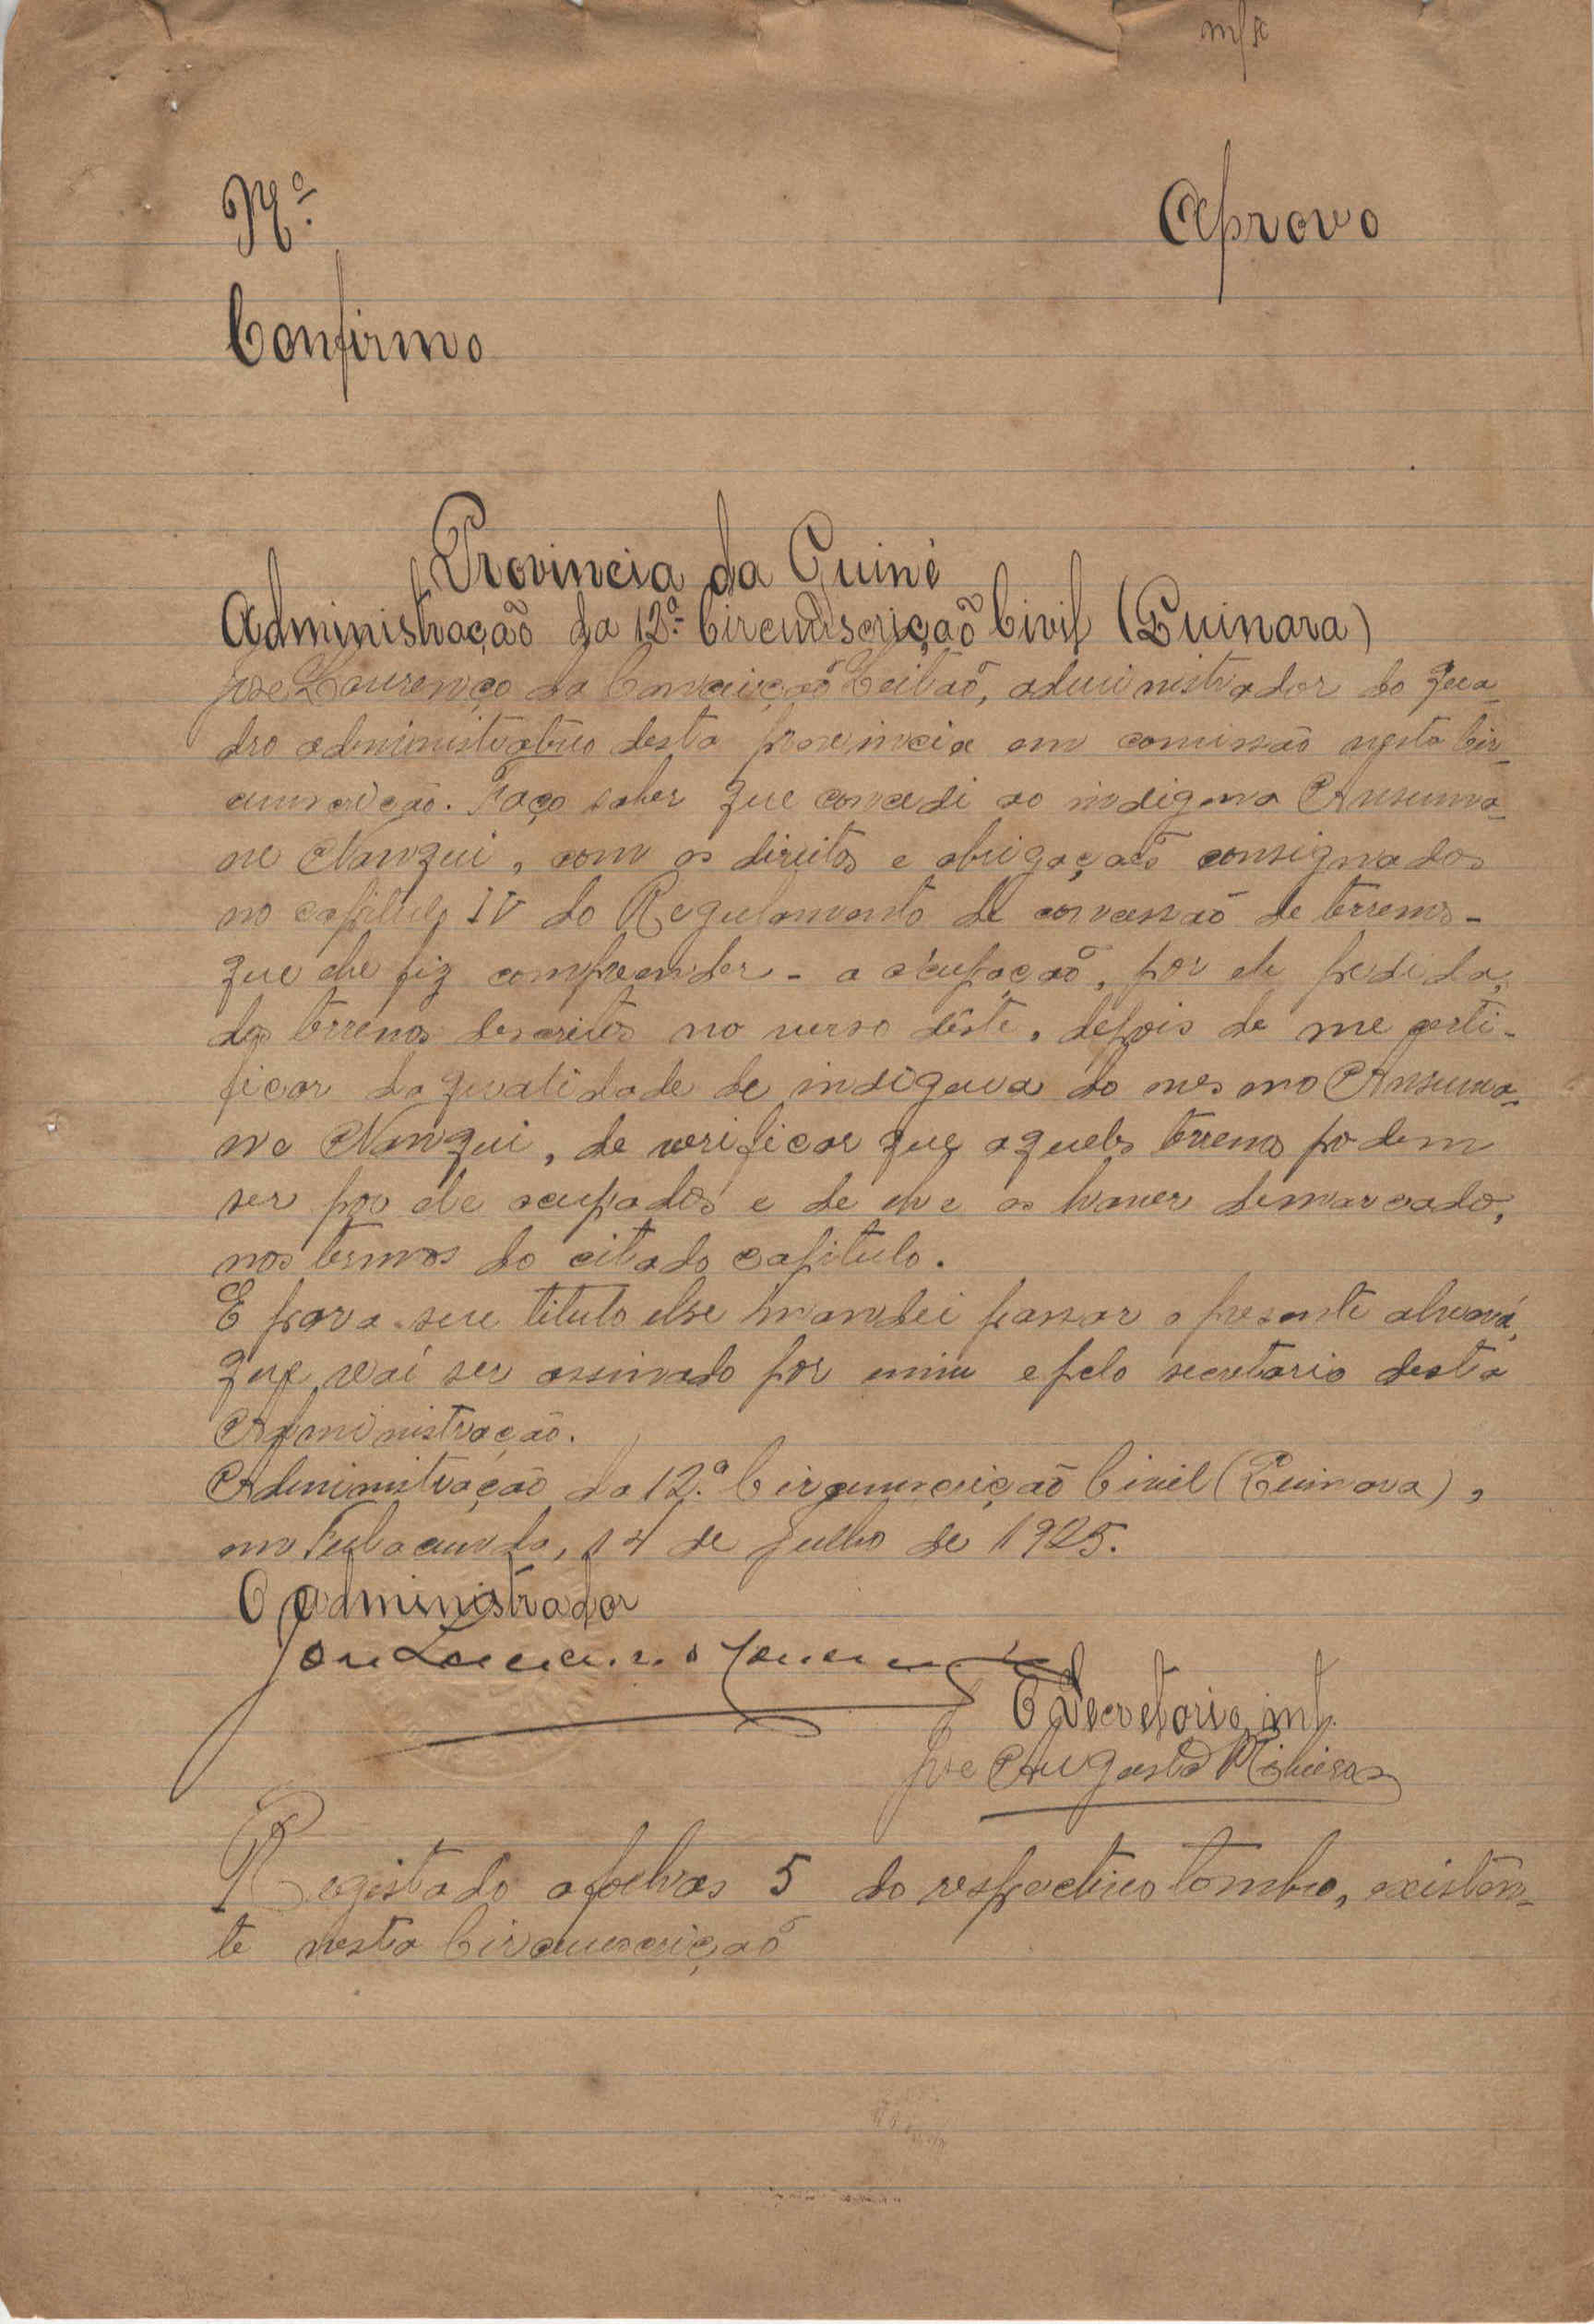 Nº.
Aprovo
Confirmo
Provincia da Guiné
Administração da 12ª. Circunscrição Civil (Quinara)
José Lourenço da Conceição Leitão, administrador do qua-
dro administrativo desta provincia em comissão nesta Cir-
cunscrição. Faço saber que concedi ao indigena Ansuma-
ne Nanqui, com os direitos e obrigações consignados
no capitulo IV do Regulamento de concessão de terrenos-
que lhe fiz compreender - a ocupação, por ele pedida,
dos terrenos descritos no verso dêste, depois de me certi-
ficar da qualidade de indigena do mesmo Ansuma-
ne Nanqui, de verificar que aqueles terrenos podem
ser por ele ocupados e de lhe os haver demarcado,
nos termos do citado capitulo.
E para seu titulo lhe mandei passar o presente alvará,
que vai ser assinado por mim e pelo secretario desta
Administração.
Administração da 12.ª Circunscrição Civil (Quinara),
em Fulacunda, 14 de Julho de 1925.
O Administrador
José Lourenço
O Secretario, int.
José Augusto
Registado a folhas 5 do respectivo tombo, existen-
te nesta Circunscrição